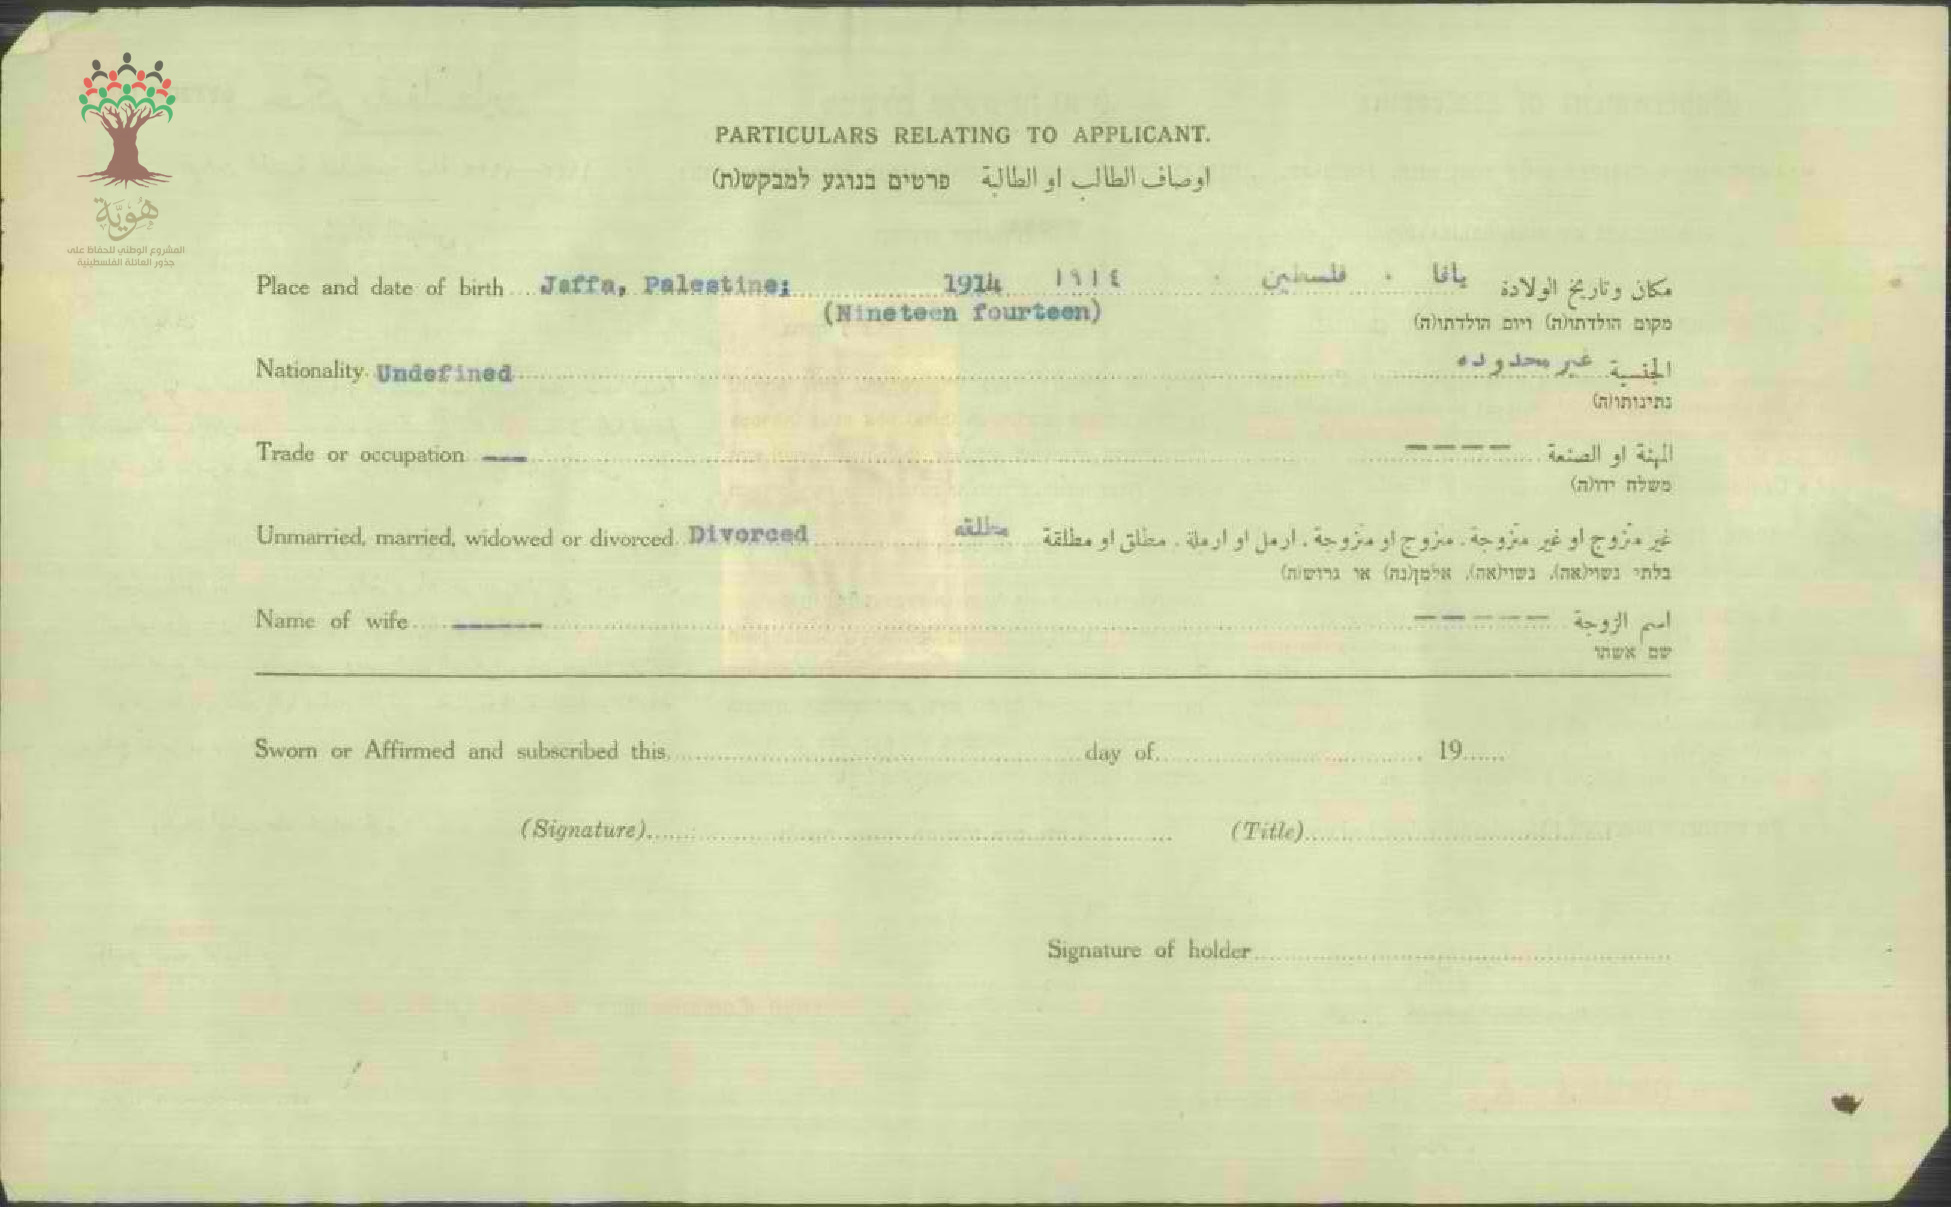 هُوِيَّة
المشروع الوطني للحفاظ على
جذور العائلة الفلسطينية
PARTICULARS RELATING TO APPLICANT.
اوصاف الطالب او الطالبة פרטים בנוגע למבקש(ת)
Place and date of birth Jaffa, Palestine; 1914 ١٩١٤ يافا ، فلسطين ، مكان وتاريخ الولادة
(Nineteen fourteen) מקום הולדתו(ה) ויום הולדתו(ה)
Nationality Undefined غير محدوده الجنسية
נתינותו(ה)
Trade or occupation --- ---- المهنة او الصنعة
משלח ידו(ה)
Unmarried, married, widowed or divorced Divorced مطلقه غير متزوج او غير متزوجة. متزوج او متزوجة. ارمل او ارملة. مطلق او مطلقة
בלתי נשוי(אה), נשוי(אה), אלמן(נה) או גרוש(ה)
Name of wife ------ ----- اسم الزوجة
שם אשתו
Sworn or Affirmed and subscribed this day of 19
(Signature) (Title)
Signature of holder